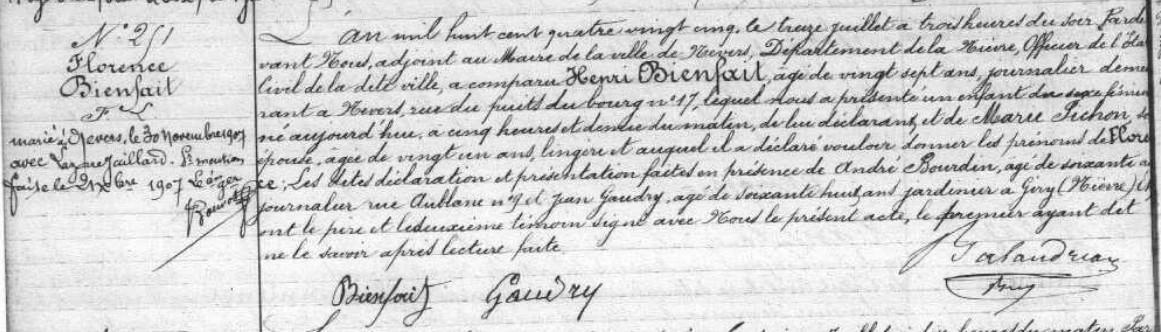 N° 251
Florence
Bienfait
F L
marié à Nevers, le 30 Novembre 1907
avec Lazare Jaillard. Pr mention
faite le 2 Xbre 1907 Le Gr
L'an mil huit cent quatre vingt cinq, le treize juillet à trois heures du soir Parde
vant Nous, adjoint au Maire de la ville de Nevers, Département de la Nièvre, Officier de l'Etat
Civil de la dite ville, a comparu Henri Bienfait, âgé de vingt sept ans, journalier demeu
rant à Nevers, rue du puits du bourg n° 17, lequel nous a présenté un enfant du sexe fémin
né aujourd'hui, à cinq heures et demie du matin, de lui déclarant, et de Marie Pichon, so
épouse, âgée de vingt un ans, lingère et auquel il a déclaré vouloir donner les prénoms de Floren
ce; Les dites déclaration et présentation faites en présence de André Bourdin, âgé de soixante a
journalier rue n° 9 et Jean Gaudry, âgé de soixante huit ans jardinier à Giry (Nièvre) Et
ont le père et le deuxième témoin signé avec Nous le présent acte, le premier ayant dit
ne le savoir après lecture faite.
Bienfait Gaudry